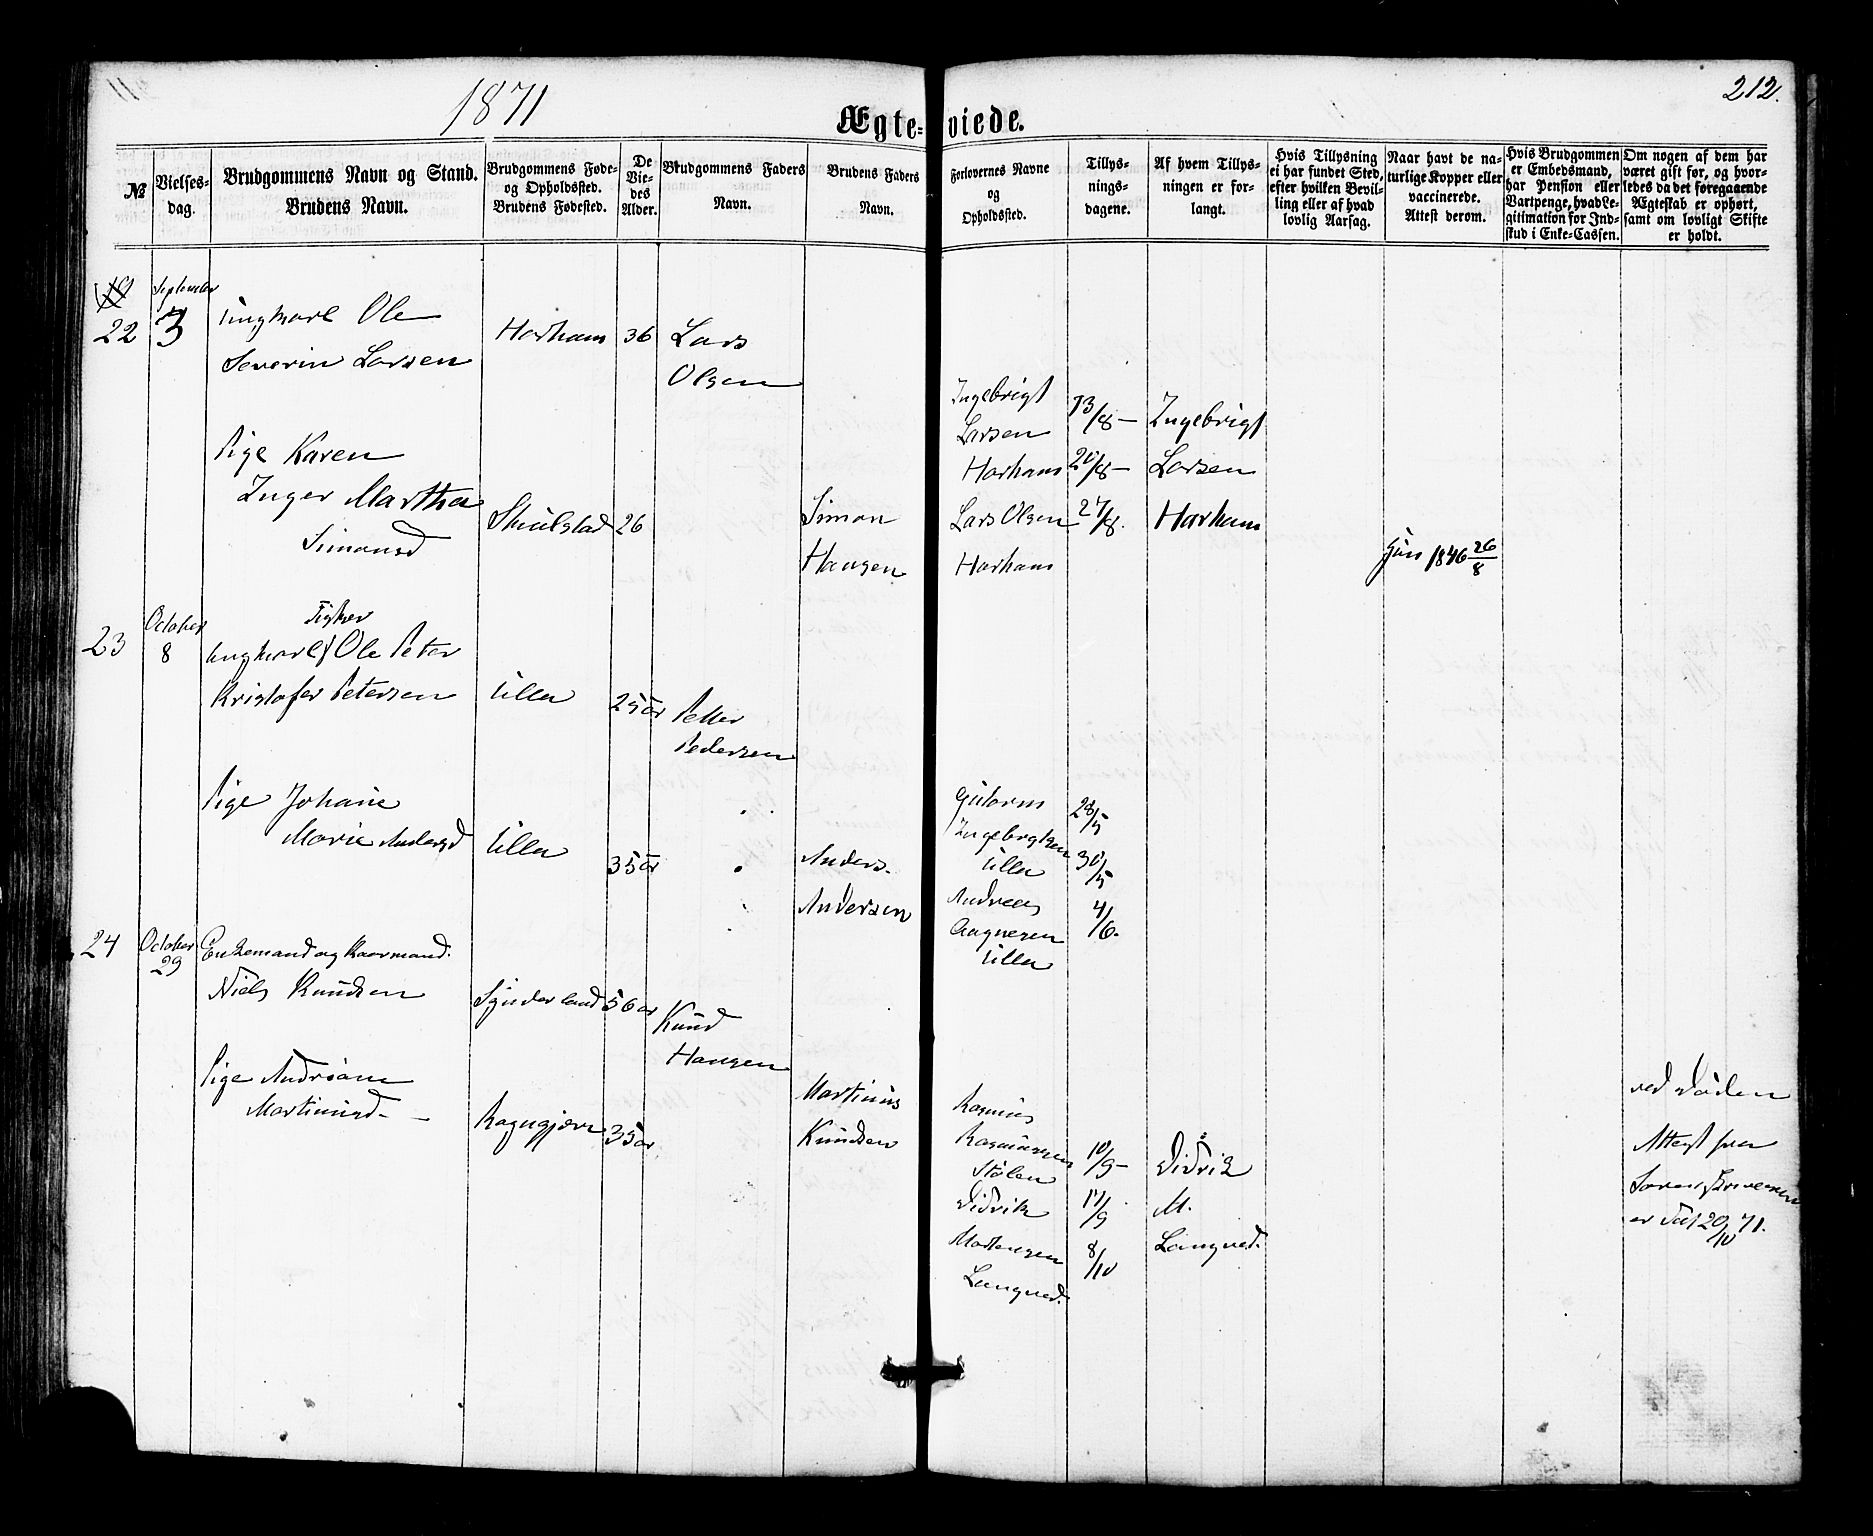 1871
212.
Ægte-viede.
№
Vielses-
dag.
Brudgommens Navn og Stand.
Brudens Navn.
Brudgommens Føde-
og Opholdssted.
Brudens Fødested.
De
Vie-
des
Alder.
Brudgommens Faders
Navn.
Brudens Faders
Navn.
Forlovernes Navne
og
Opholdssted.
Tillys-
nings-
dagene.
Af hvem Tillys-
ningen er for-
langt.
Hvis Tillysning
ei har fundet Sted,
efter hvilken Bevil-
ling eller af hvad
lovlig Aarsag.
Naar havt de na-
turlige Kopper eller
vaccinerede.
Attest derom.
Hvis Brudgommen
er Embedsmand,
har Pension eller
Vartpenge, hvad Le-
gitimation for Ind-
skud i Enke-Cassen.
Om nogen af dem har
været gift før, og hvor-
ledes da det foregaaende
Ægteskab er ophørt,
samt om lovligt Skifte
er holdt.
22
September
3
Ungkarl Ole
Severin Larsen
Harham
36
Lars
Olsen
Pige Karen
Inger Martha
Simonsd
Skulstad
26
Simon
Hansen
Ingebrigt
Larsen
Harham
Lars Olsen
Harham
13/8 –
20/8 –
27/8.
Ingebrigt
Larsen
Harham
1846 26/8
23
October
8
Fisker
Ungkarl Ole Peter
Kristofer Petersen
Ulla
25 år
Petter
Pedersen
Pige Johane
Marie Andersd
Ulla
35 år
Anders
Andersen
Gutorm
Ingebrgtsen
Ulla
Andreas
Aagnesen
Ulla
28/5
30/5
4/6.
24
October
29
Enkemand og Kaarmand.
Niels Knudsen
Synderland
56 år
Knud
Hansen
Pige Andrianne
Martinusd –
Ragngjerr
35 år
Martinus
Knudsen
Rasmus
Rasmussen
Stölen
Didrik
Mortensen
Langved.
10/9 –
17/9
8/10
Didrik
M.
Langved.
ved Döden
Attest fra
er dat 20/10 71.